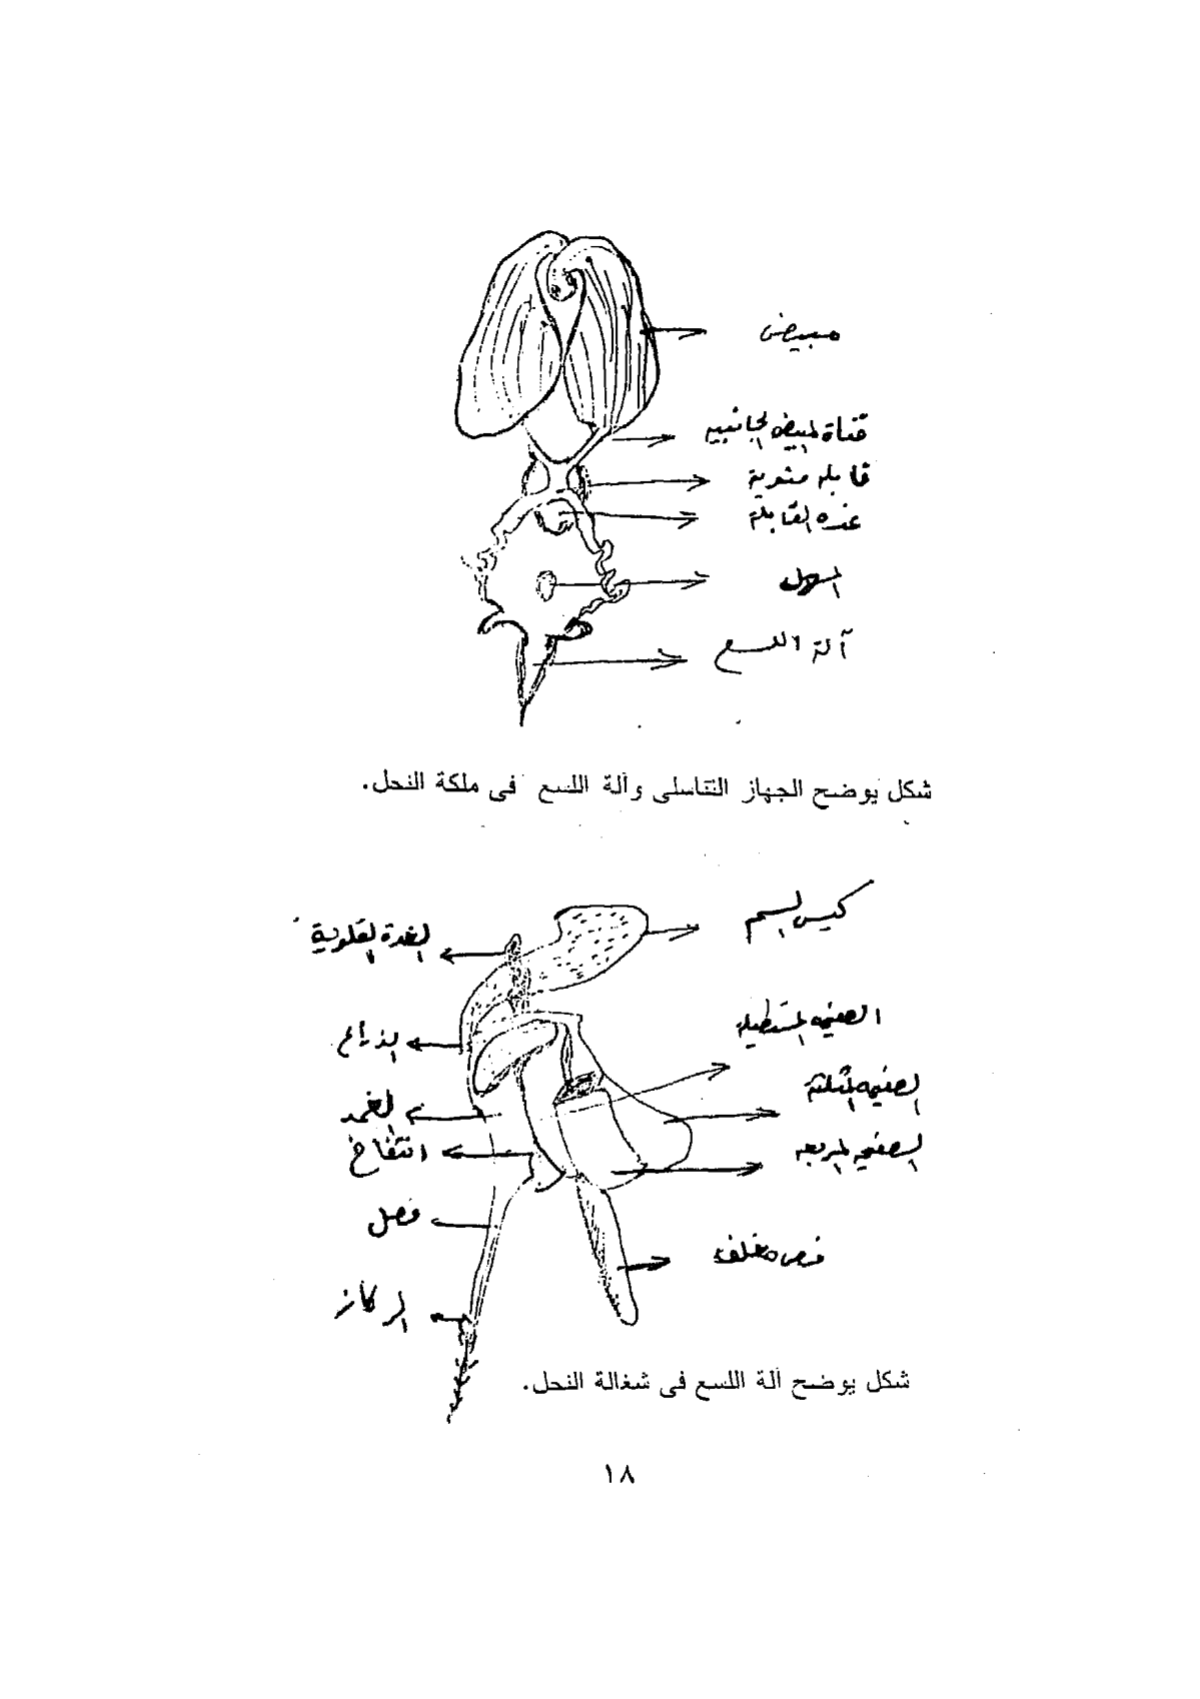 مبيض
قناة المبيض الجانبيه
قابله منوية
غده القابلة
المهبل
آلة اللسع
شكل يوضح الجهاز التناسلى وآلة اللسع فى ملكة النحل.
كيس السم
الغدة القلوية
الصفيحه المستطيله
الذراع
الصفيحه المثلثة
الغمد
الصفيحه المربعه
انتفاخ
فصل
مغلف
شكل يوضح آلة اللسع فى شغالة النحل.
١٨